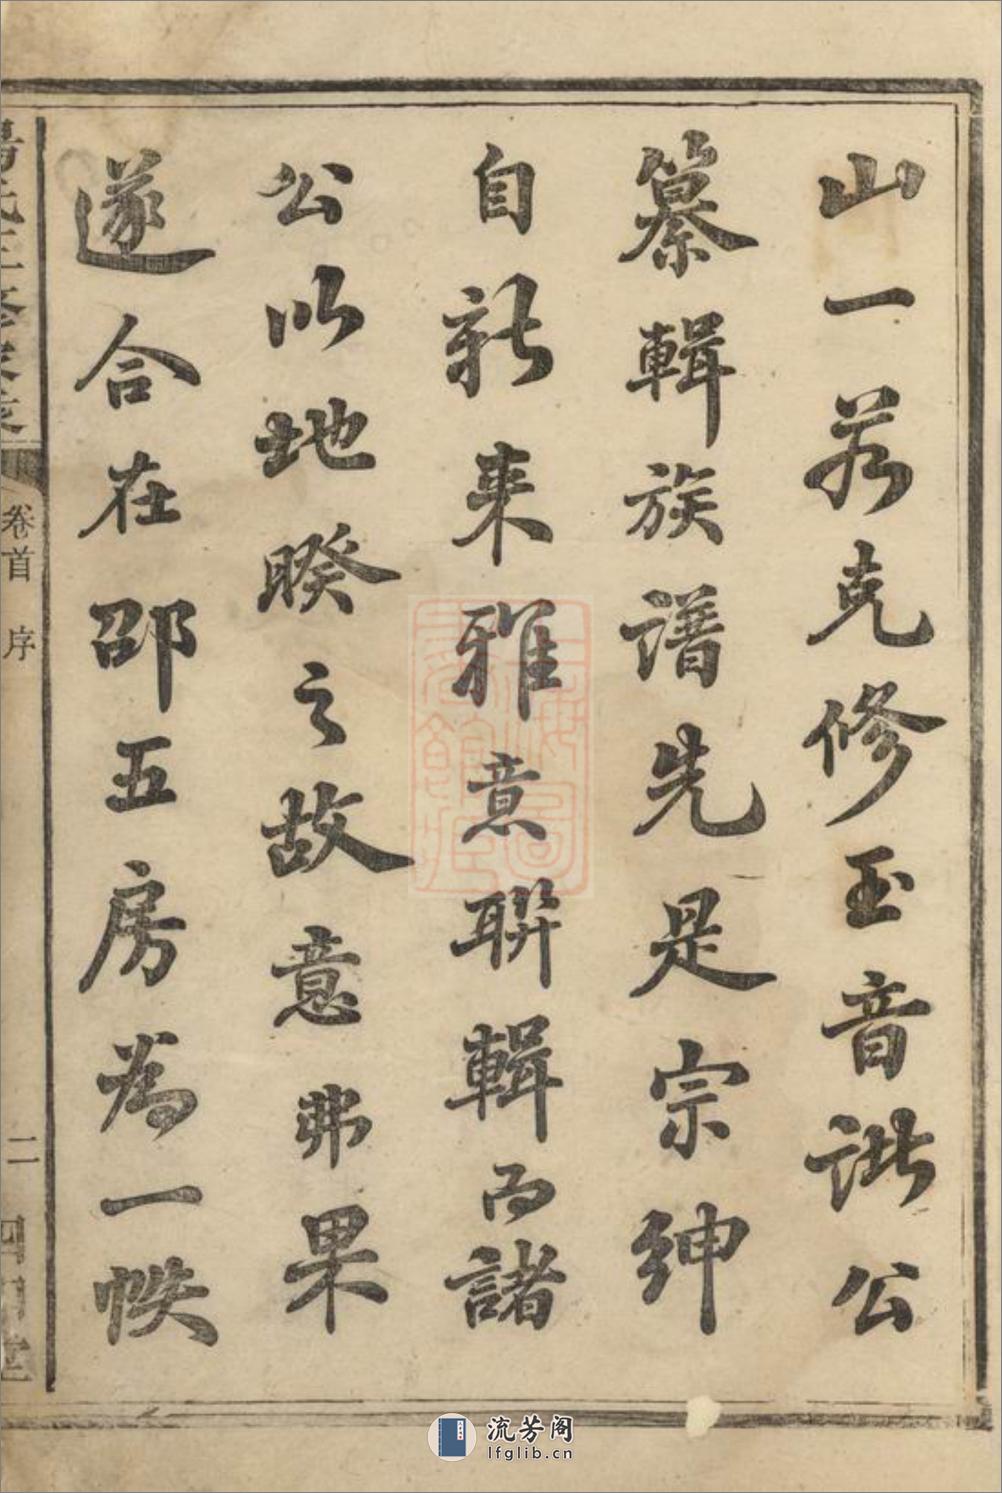 山一若克修玉音公
纂輯族譜先是宗紳
自新来雅意聯輯而諸
公以地暌之故意弗果
遂合在邵五房為一帙
卷首 序
二
流芳阁
lfglib.cn